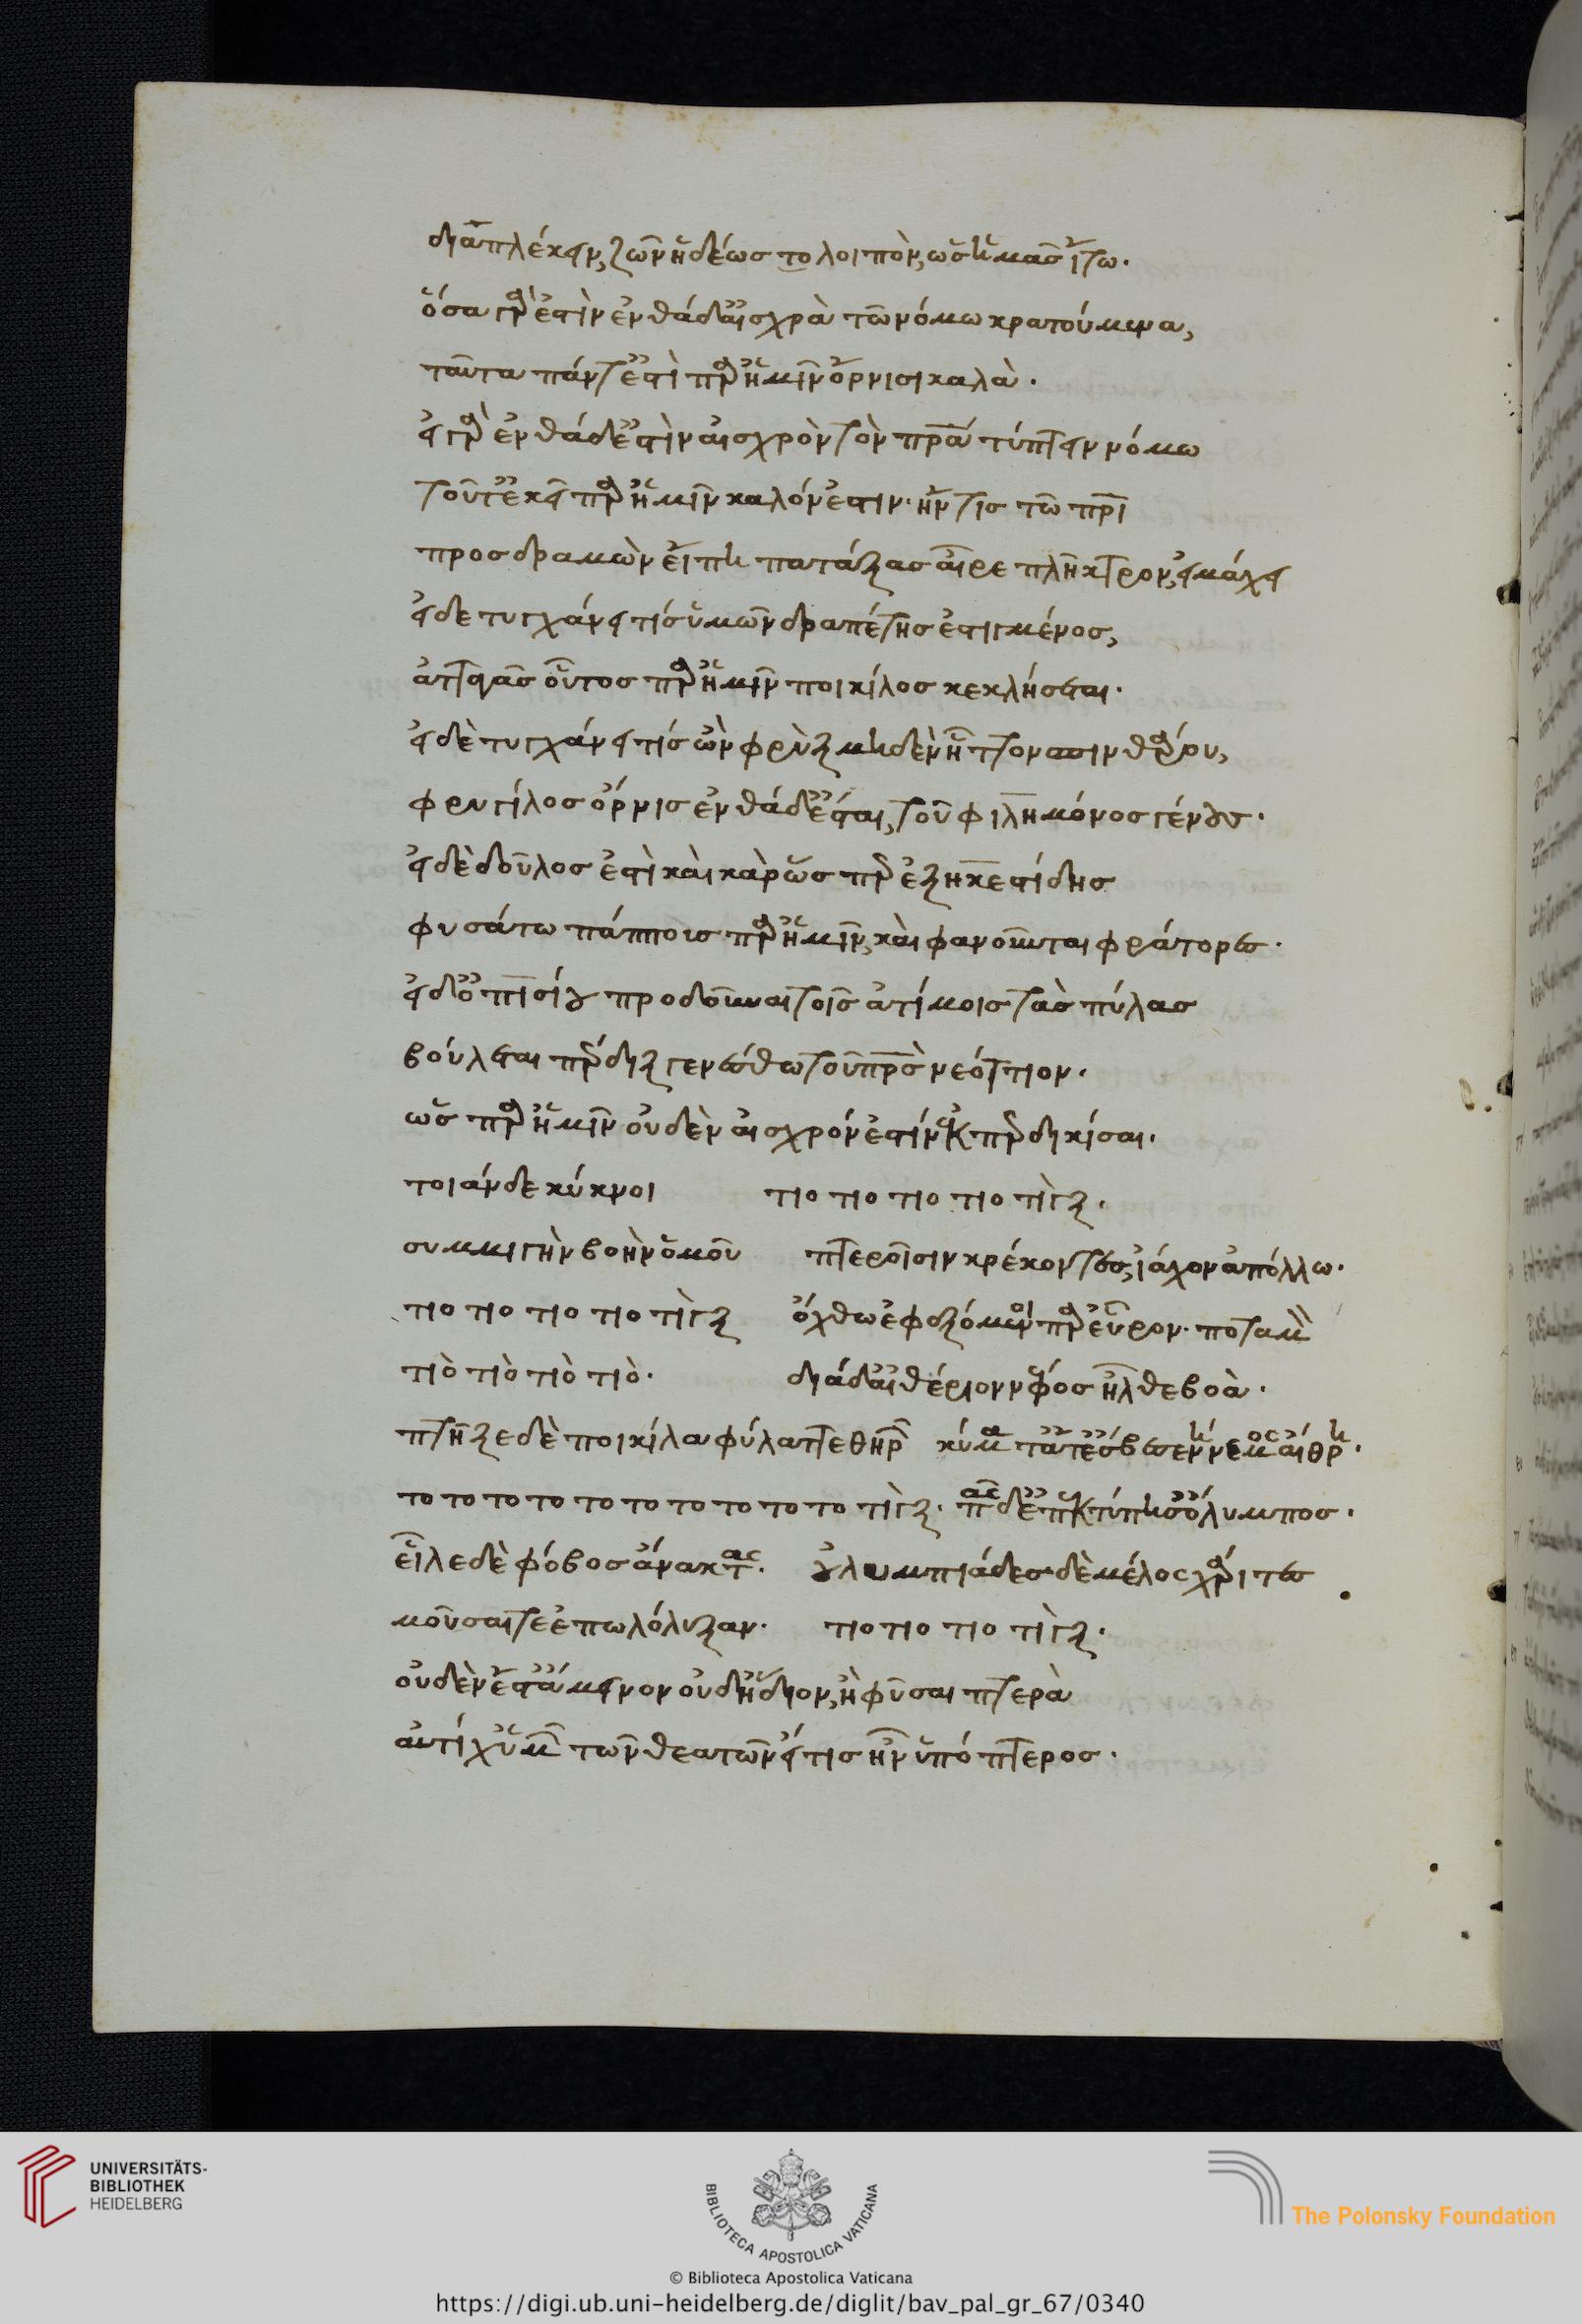 διαπλέκειν ζῶν ἡδέως τολοιπὸν, ὡς ἡμᾶς ἴτω.
ὅσα γάρ ἐστὶν ἐνθάδ' αἰσχρὰ τῶ νόμω κρατούμενα,
ταῦτα πάντ' ἐστὶ παρ' ἡμῖν ὄρνισι καλὰ.
εἰ γὰρ ἐνθάδ' ἐστὶν αἰσχρὸν τὸν πρα τύπτειν νόμω
τοῦτ' ἐκεῖ παρ' ἡμῖν καλόν ἐστιν. ἤν τις τῶ πρι
προσδραμὼν εἴπη πατάξας αἶρε πλῆκτρον, εἰ μάχει
εἰ δε τυγχάνει τίς ὑμῶν δραπέτης ἐστιγμένος,
ἀτταγᾶς οὗτος παρ' ἡμῖν ποικίλος κεκλήσεται.
εἰ δὲ τυγχάνει τίς ὢν φρὺξ μηδὲν ἧττον σπινθάρου,
φρυγίλος ὄρνις ἐνθάδ' ἔσται, τοῦ φιλήμονος γένους.
εἰ δὲ δοῦλος ἐστὶ καὶ κὰρ ὥσπερ ἐξηκεστίδης
φυσάτω πάππους παρ' ἡμῖν, καὶ φανοῦνται φράτορες.
εἰ δ' ὁ πισίου προδοῦναι τοῖς ἀτίμοις τὰς πύλας
βούλεται πέρδιξ γενέσθω τοῦ πρς νεόττιον.
ὡς παρ' ἡμῖν οὐδὲν αἰσχρόν ἐστίν ἐκπερδικίσαι.
τοιάνδε κύκνοι τιο τιο τιο τιο τὶγξ.
συμμιγῆ βοὴν ὁμοῦ πτεροῖσιν κρέκοντες, ἴαχον ἀπόλλω.
τιο τιο τιο τιο τὶγξ ὄχθω ἐφεζόμενοι παρ' εὗρον. ποταμὸν
τιὸ τιὸ τιὸ τιὸ. διάδ' αἰθέριον νέφος ἦλθε βοὰ.
πτῆξε δὲ ποικίλα φύλα τε θηρῶν κύματά τ' ἔσβεσε νήνεμος αἴθρη.
το το το το το το το το το το τὶγξ. πᾶς δ' ἐπεκτύπησ' ὄλυμπος.
εἷλε δὲ φόβος ἄνακτας. ὀλυμπιάδες δὲ μέλος χάριτες
μοῦσαι τε ἐπωλόλυξαν. τιο τιο τιο τὶγξ.
οὐδὲν ἔστ' ἄμεινον οὐδ' ἥδιον, ἢ φῦσαι πτερὰ
αὐτίχ' ὑμῶν τῶν θεατῶν εἴ τις ἦν ὑπόπτερος.
UNIVERSITÄTS-
BIBLIOTHEK
HEIDELBERG
BIBLIOTECA APOSTOLICA VATICANA
The Polonsky Foundation
© Biblioteca Apostolica Vaticana
https://digi.ub.uni-heidelberg.de/diglit/bav_pal_gr_67/0340